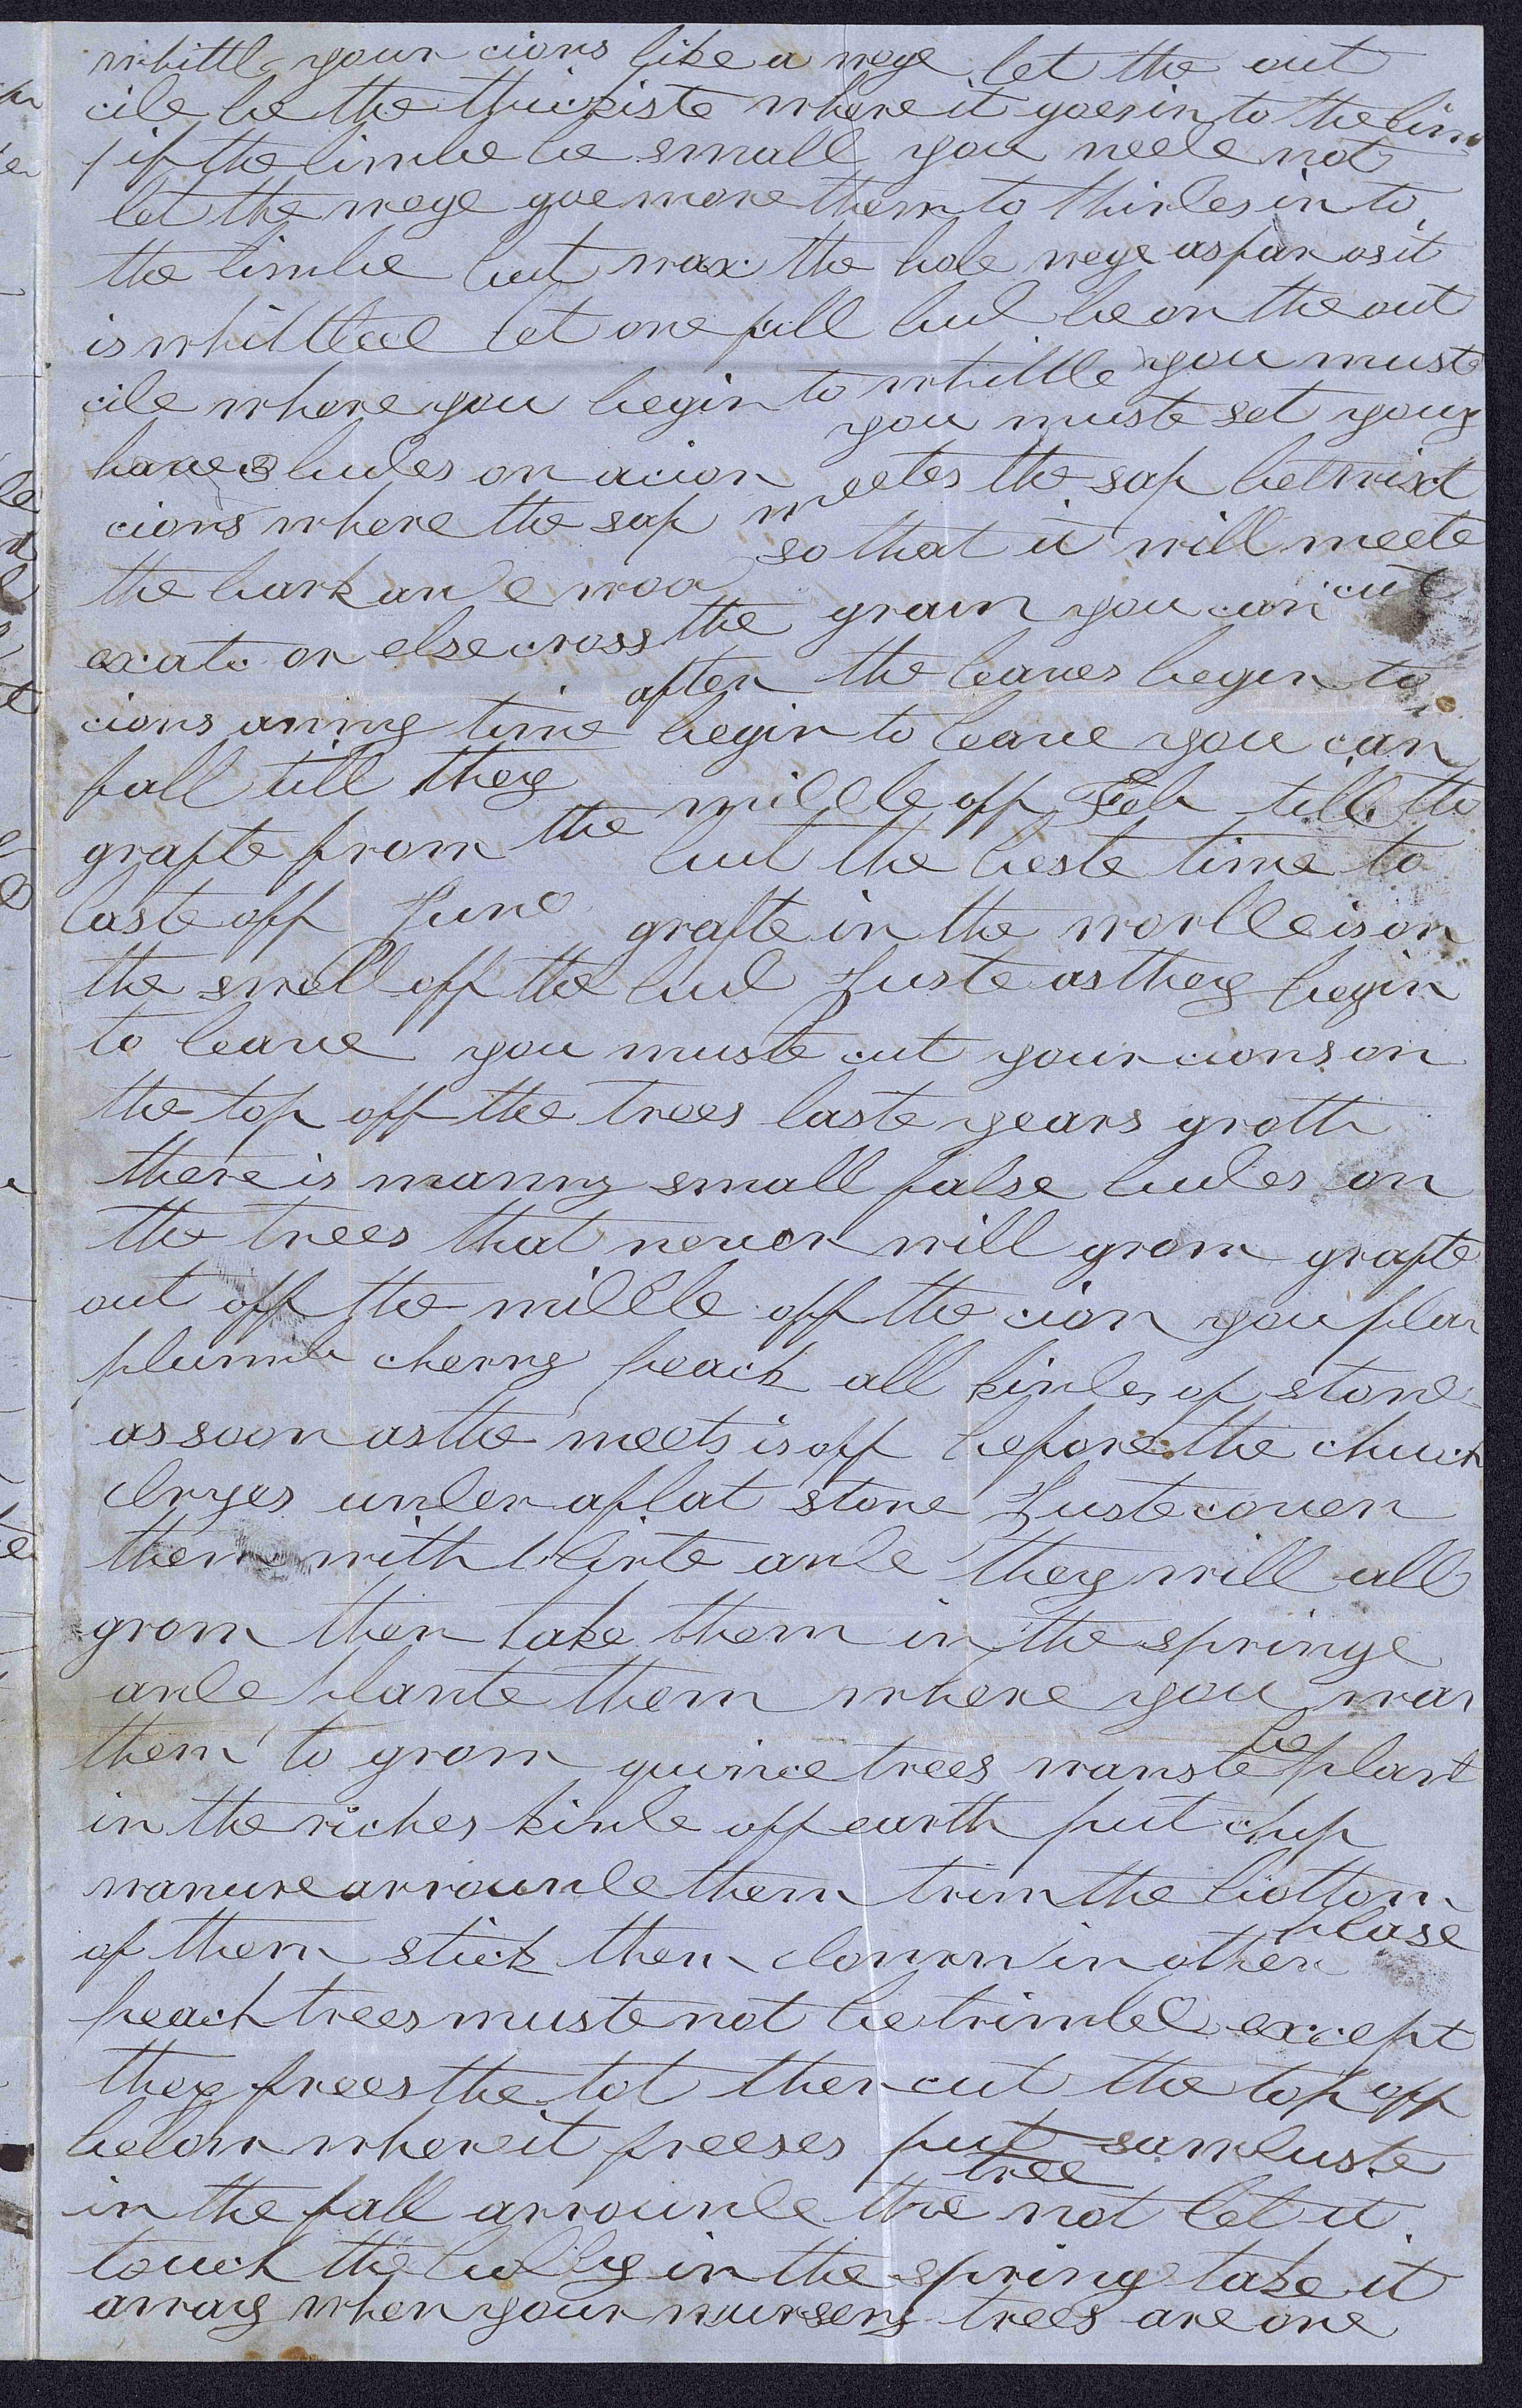 whittle your cions like a wege let the out
cide be the thickiste where it goes in to the lim
if the limbe be small you neede not
let the wege goe more them to thirdes in to
the limbe but wax the hole wege as far as it
is whittled let one full bud be on the out
cide where you begin to whittle you muste
have 3 budes on a cion you muste set your
cions where the sap meetes the sap betwixt
the bark and woo so that it will meete
exate or else cross the grain you can cut
cions anny time after the leaves begin to
fall till they begin to leave you can
grafte from the middle off Feb till the
laste off June but the beste time to
grafte in the worlde is on
the swell off the bud Juste as they begin
to leave you muste cut your cions on
the top off the trees laste years groth
there is manny small false budes on
the trees that never will grow grafte
out off the middle off the cion you plan
plumb cherry peach all kindes of stone
as soon as the meets is off before the chuck
dryes under a flat stone Juste cover
them with dirte ande they will all
grow then take them in the springe
ande plante them where you wan
them to grow quince trees wanste be plant
in the riches kinde off earth put chip
manure arrounde them trim the bottom
of them stick them down in other please
peach trees muste not be trimbed except
they freese the tot then cut the top off
below where it freeses put sawduste
in the fall arrounde the tree not let it
touch the buddy in the springe take it
away when your nursery trees are one